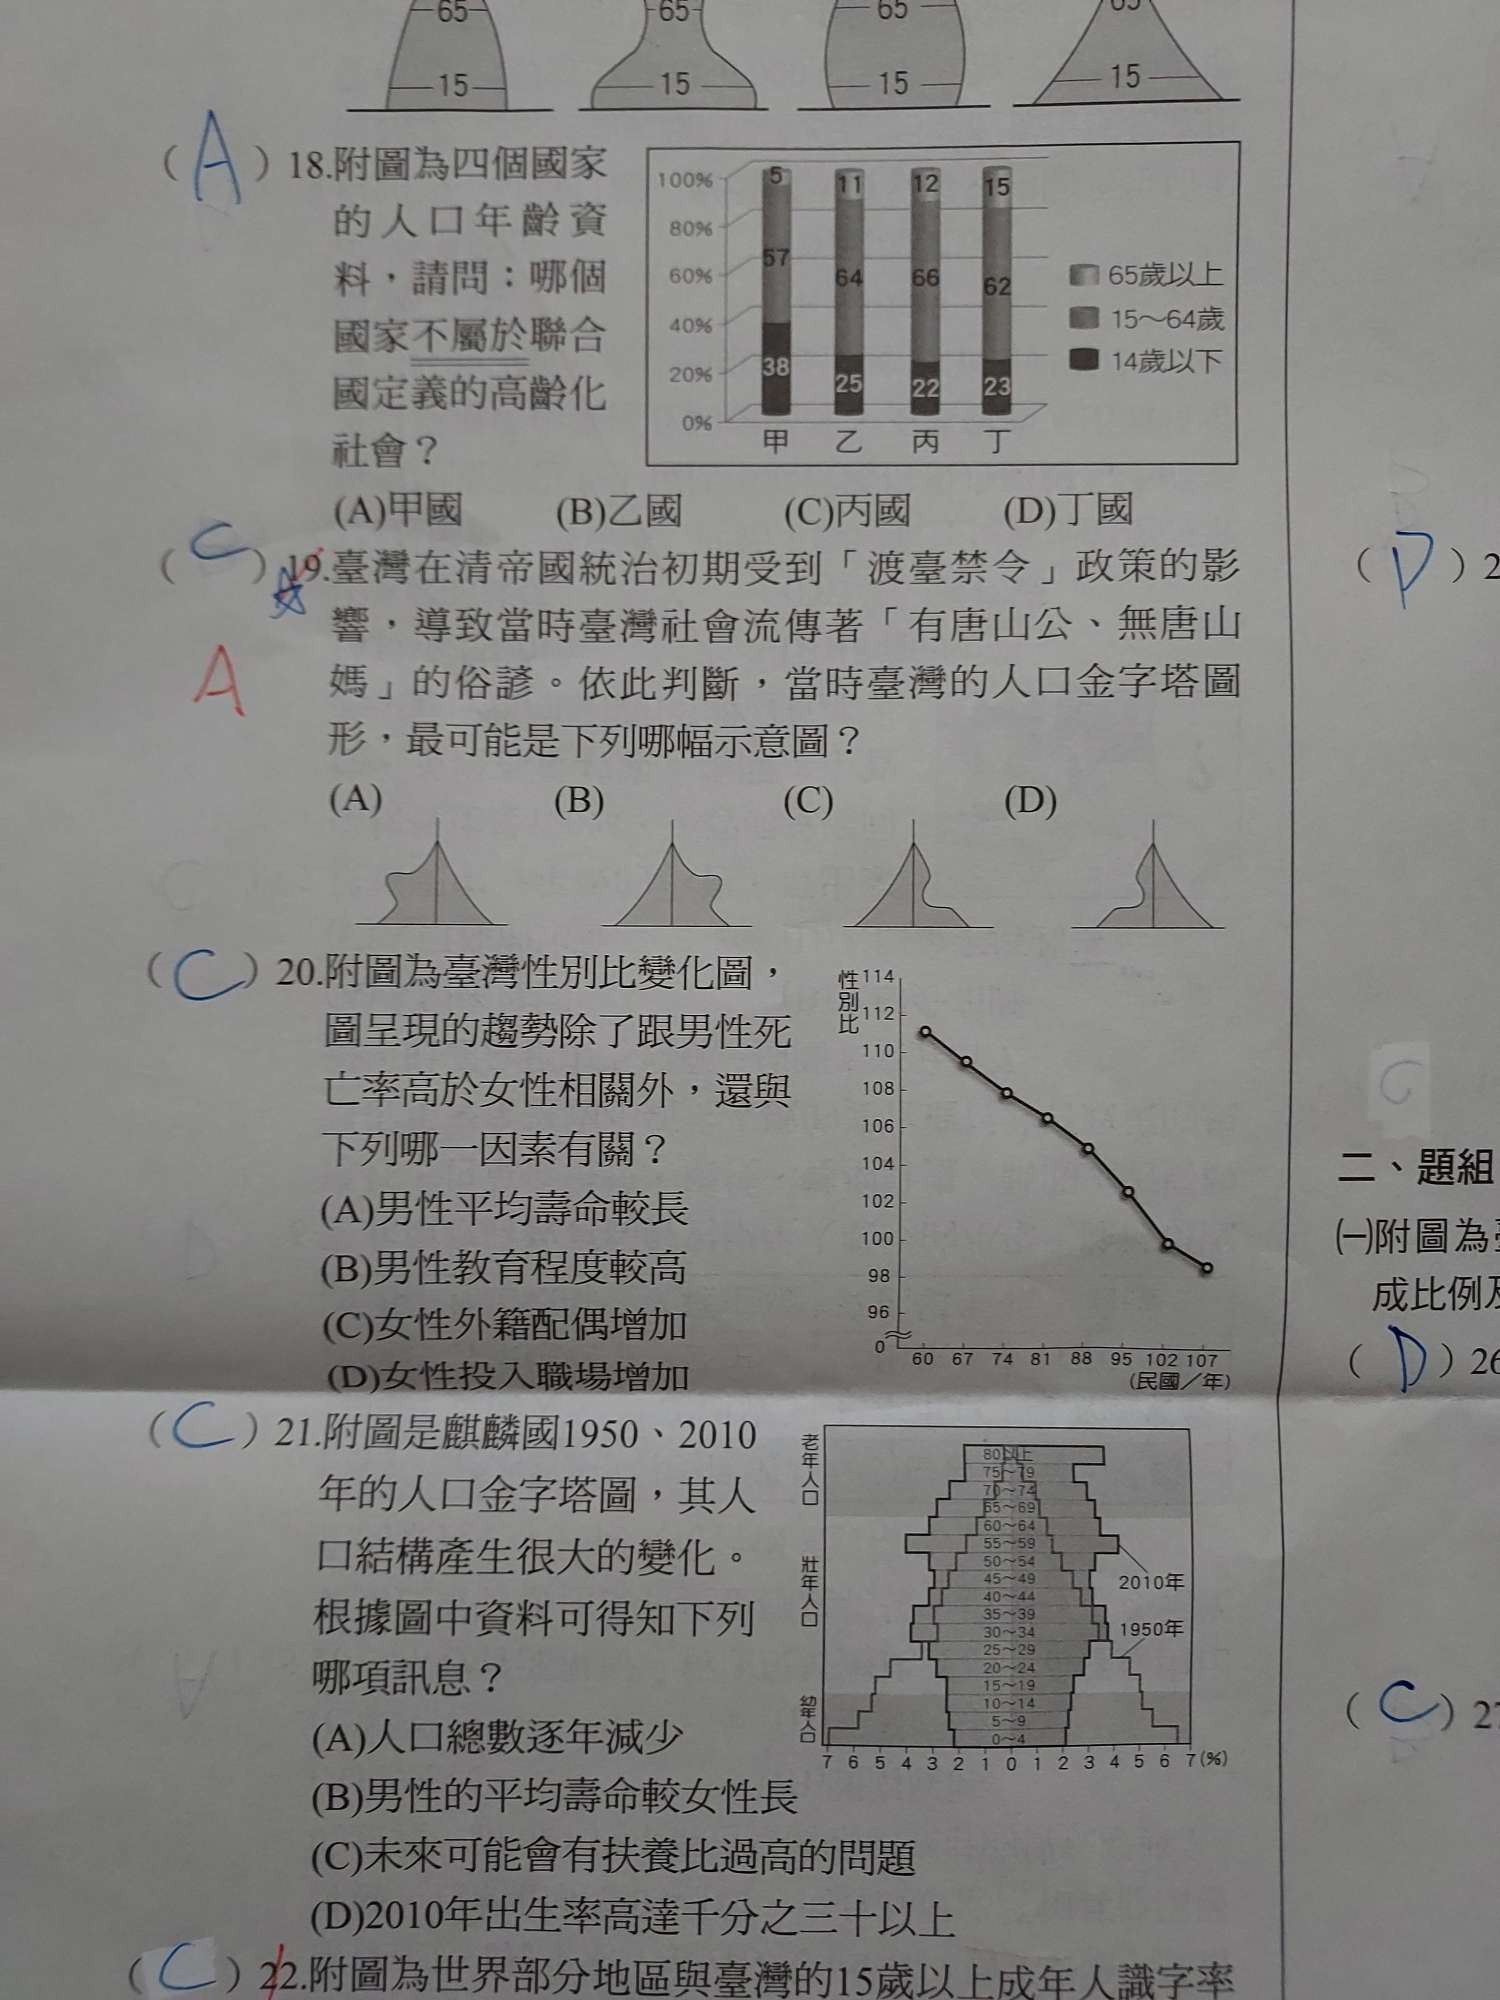 65 65 65 65
15 15 15 15
(A)18.附圖為四個國家
的人口年齡資
料，請問：哪個
國家不屬於聯合
國定義的高齡化
社會？
100%
80%
60%
40%
20%
0%
5 11 12 15
57 64 66 62
38 25 22 23
甲 乙 丙 丁
65歲以上
15～64歲
14歲以下
(A)甲國 (B)乙國 (C)丙國 (D)丁國
(C)19.臺灣在清帝國統治初期受到「渡臺禁令」政策的影
響，導致當時臺灣社會流傳著「有唐山公、無唐山
A
媽」的俗諺。依此判斷，當時臺灣的人口金字塔圖
形，最可能是下列哪幅示意圖？
(A) (B) (C) (D)
(C)20.附圖為臺灣性別比變化圖，
圖呈現的趨勢除了跟男性死
亡率高於女性相關外，還與
下列哪一因素有關？
(A)男性平均壽命較長
(B)男性教育程度較高
(C)女性外籍配偶增加
(D)女性投入職場增加
性別比
114
112
110
108
106
104
102
100
98
96
0
60 67 74 81 88 95 102 107
(民國／年)
(C)21.附圖是麒麟國1950、2010
年的人口金字塔圖，其人
口結構產生很大的變化。
根據圖中資料可得知下列
哪項訊息？
(A)人口總數逐年減少
(B)男性的平均壽命較女性長
(C)未來可能會有扶養比過高的問題
(D)2010年出生率高達千分之三十以上
老年人口
壯年人口
幼年人口
80以上
75～79
70～74
65～69
60～64
55～59
50～54
45～49
40～44
35～39
30～34
25～29
20～24
15～19
10～14
5～9
0～4
2010年
1950年
7 6 5 4 3 2 1 0 1 2 3 4 5 6 7(%)
(C)22.附圖為世界部分地區與臺灣的15歲以上成年人識字率
(D)2
二、題組
㈠附圖為
成比例及
(D)26
(C)27